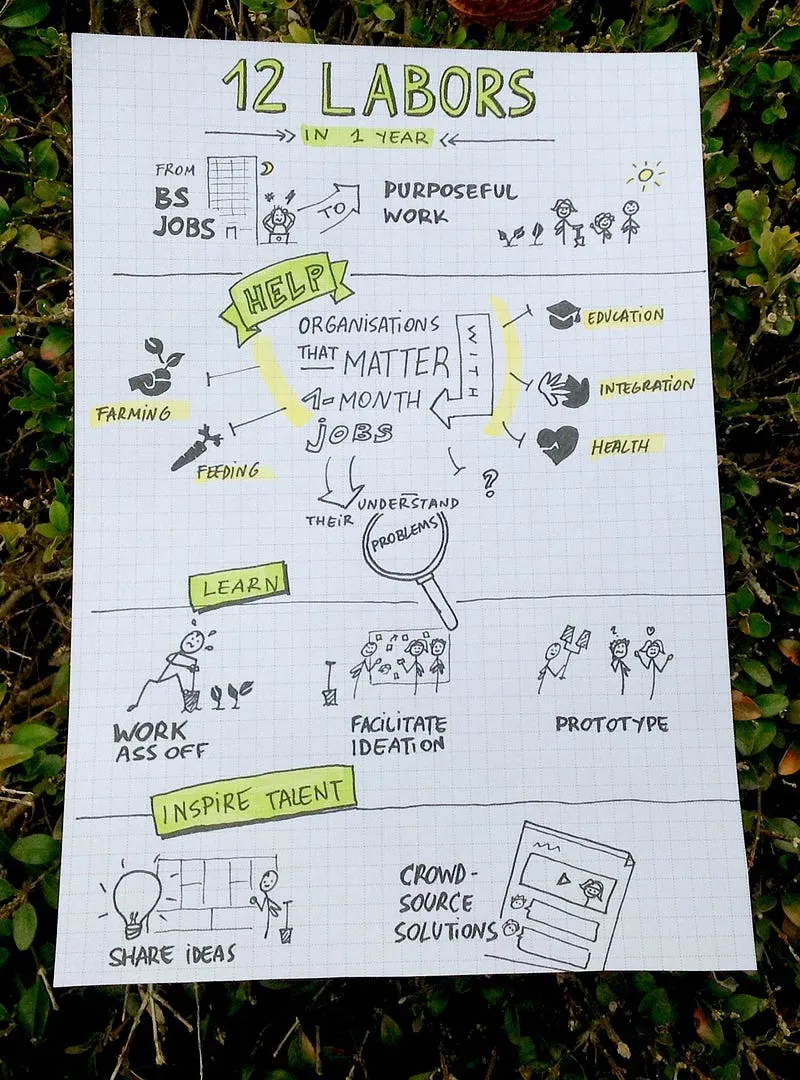 12 LABORS
IN 1 YEAR
FROM
BS
JOBS
TO
PURPOSEFUL
WORK
HELP
ORGANISATIONS
THAT MATTER
WITH
1-MONTH
JOBS
FARMING
FEEDING
EDUCATION
INTEGRATION
HEALTH
?
UNDERSTAND
THEIR
PROBLEMS
LEARN
WORK
ASS OFF
FACILITATE
IDEATION
PROTOTYPE
INSPIRE TALENT
SHARE IDEAS
CROWD-
SOURCE
SOLUTIONS